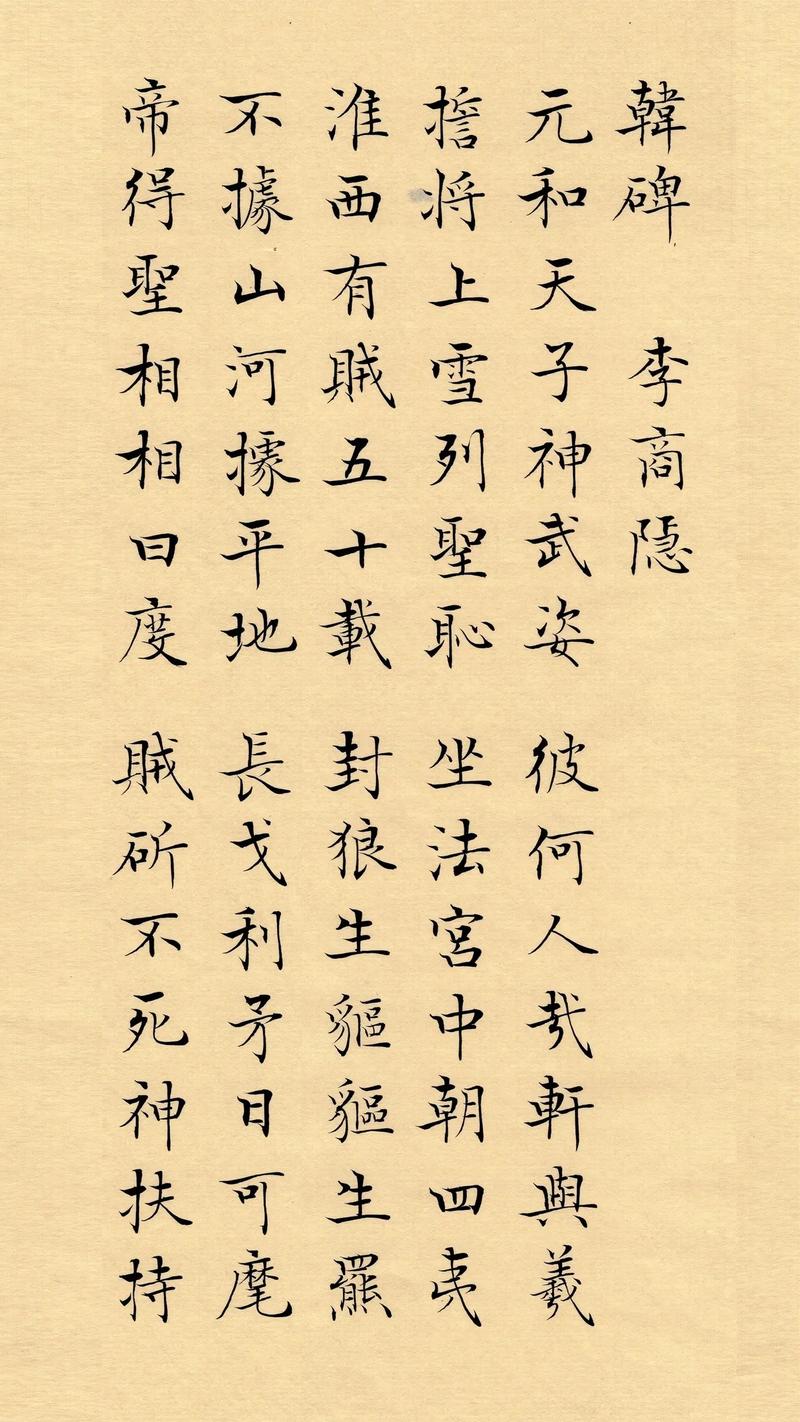 韓碑　李商隱
元和天子神武姿　彼何人哉軒與羲
擔将上雪列聖恥　坐法宮中朝四夷
淮西有賊五十載　封狼生貙貙生羆
不據山河據平地　長戈利矛日可麾
帝得聖相相曰度　賊斫不死神扶持